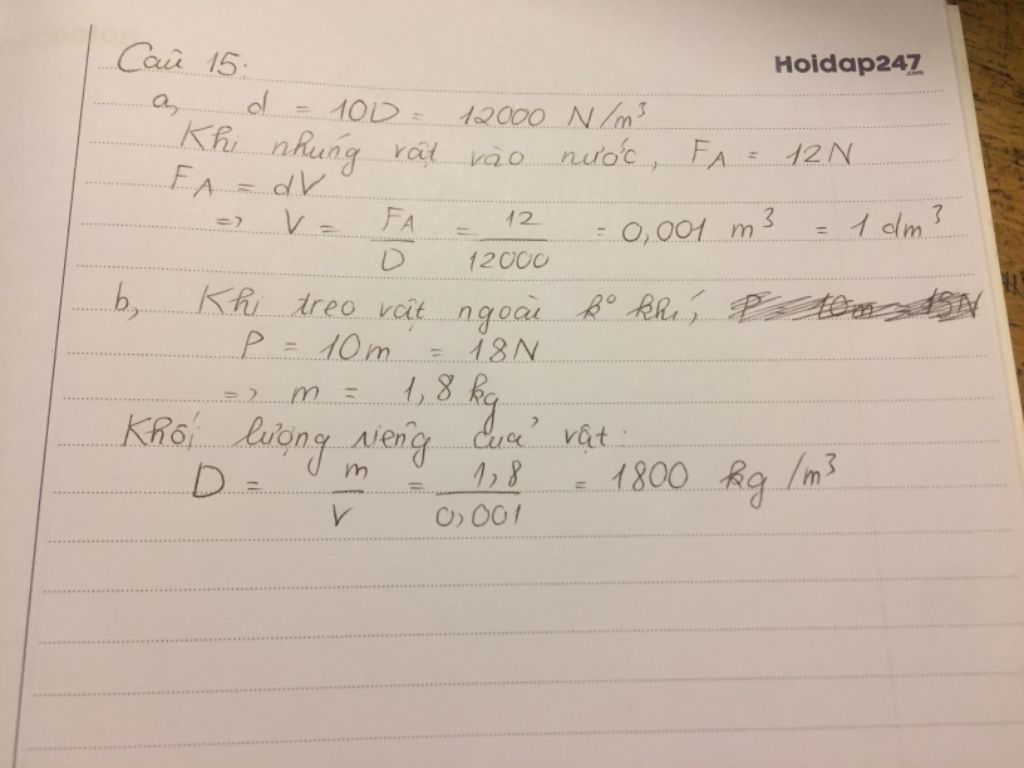 Câu 15:
Hoidap247
.com
a, d = 10D = 12000 N/m³
Khi nhúng vật vào nước, FA = 12N
FA = dV
=> V = FA/D = 12/12000 = 0,001 m³ = 1 dm³
b, Khi treo vật ngoài k° khí,
P = 10m = 18N
=> m = 1,8 kg
Khối lượng riêng của vật:
D = m/V = 1,8/0,001 = 1800 kg/m³